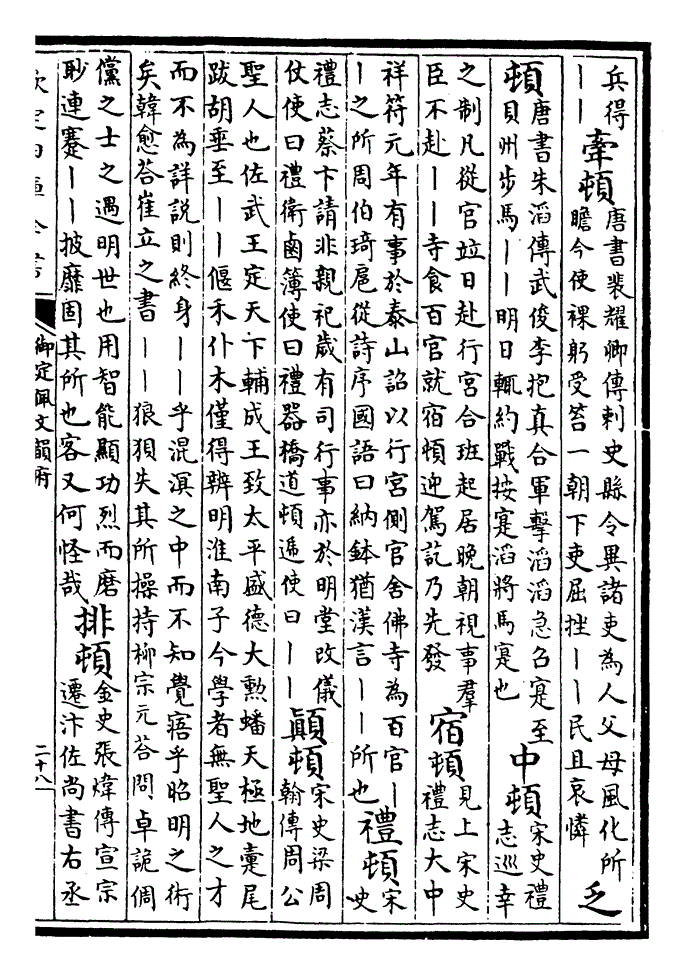 兵得
——
牽頓
唐書裴耀卿傳刺史縣令異諸吏為人父母風化所
瞻今使裸躬受笞一朝下吏屈挫——民且哀憐
乏
頓
唐書朱滔傳武俊李抱真合軍擊滔滔急召寔至
貝州步馬——明日輒約戰按寔滔將馬寔也
中頓
宋史禮
志巡幸
之制凡從官竝日赴行宮合班起居晚朝視事羣
臣不赴——寺食百官就宿頓迎駕訖乃先發
宿頓
見上宋史
禮志大中
祥符元年有事於泰山詔以行宮側官舍佛寺為百官—
—之所周伯琦扈從詩序國語曰納鉢猶漢言——所也
禮頓
宋
史
禮志蔡卞請非親祀歲有司行事亦於明堂改儀
仗使曰禮衛鹵簿使曰禮器橋道頓遞使曰——
顚頓
宋史梁周
翰傳周公
聖人也佐武王定天下輔成王致太平盛德大勲蟠天極地疐尾
跋胡垂至——偃禾仆木僅得辨明淮南子今學者無聖人之才
而不為詳説則終身——乎混溟之中而不知覺寤乎昭明之術
矣韓愈答崔立之書——狼狽失其所操持柳宗元答問卓詭倜
儻之士之遇明世也用智能顯功烈而磨
眇連蹇——披靡固其所也客又何怪哉
排頓
金史張煒傳宣宗
遷汴佐尚書右丞
欽定四庫全書
御定佩文韻府
二十八